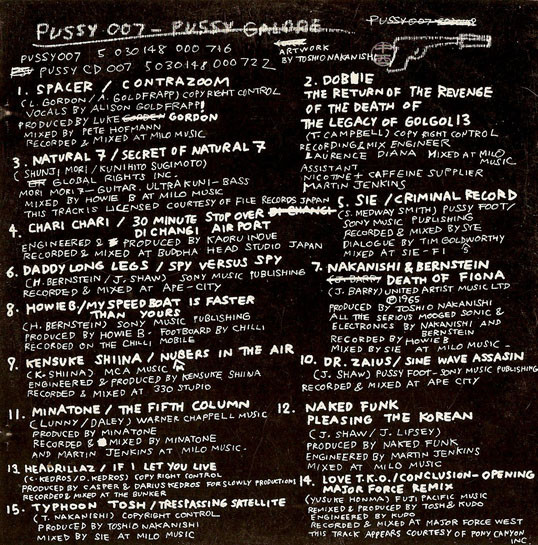 PUSSY 007 - PUSSY GALORE
PUSSY 007
PUSSY007 5 030148 000 716
ARTWORK
BY TOSHIO NAKANISHI
PUSSY CD 007 5030148 000 722
1. SPACER / CONTRAZOOM
(L. GORDON / A. GOLDFRAPP) COPYRIGHT CONTROL
VOCALS BY ALISON GOLDFRAPP!
PRODUCED BY LUKE GORDON
MIXED BY PETE HOFMANN
RECORDED & MIXED AT MILO MUSIC
2. DOBIE
THE RETURN OF THE REVENGE
OF THE DEATH OF
THE LEGACY OF GOLGOL13
(T. CAMPBELL) COPYRIGHT CONTROL
RECORDING & MIX ENGINEER
LAURENCE DIANA MIXED AT MILO MUSIC.
ASSISTANT
NICOTINE + CAFFEINE SUPPLIER
MARTIN JENKINS
3. NATURAL 7 / SECRET OF NATURAL 7
(SHUNJI MORI / KUNIHITO SUGIMOTO)
GLOBAL RIGHTS INC.
MORI MORI 7 - GUITAR. ULTRAKUNI - BASS
MIXED BY HOWIE B AT MILO MUSIC
THIS TRACK IS LICENSED COURTESY OF FILE RECORDS JAPAN
4. CHARI CHARI / 30 MINUTE STOP OVER DI CHANGI
DI CHANGI AIRPORT
ENGINEERED & PRODUCED BY KAORU INOUE
RECORDED & MIXED AT BUDDHA HEAD STUDIO JAPAN
5. SIE / CRIMINAL RECORD
(S. MEDWAY SMITH) PUSSY FOOT /
SONY MUSIC PUBLISHING
RECORDED & MIXED BY SIE
DIALOGUE BY TIM GOLDWORTHY
MIXED AT SIE-FI
6. DADDY LONG LEGS / SPY VERSUS SPY
(H. BERNSTEIN / J. SHAW) SONY MUSIC PUBLISHING
RECORDED & MIXED AT APE-CITY
7. NAKANISHI & BERNSTEIN
(J. BARRY) DEATH OF FIONA
(J. BARRY) UNITED ARTIST MUSIC LTD
©1965
PRODUCED BY TOSHIO NAKANISHI
ALL THE SERIOUS MOOGED SONIC &
ELECTRONICS BY NAKANISHI AND
BERNSTEIN
RECORDED BY HOWIE B
MIXED BY SIE AT MILO MUSIC -
8. HOWIE B. / MY SPEEDBOAT IS FASTER
THAN YOURS
(H. BERNSTEIN) SONY MUSIC PUBLISHING
PRODUCED BY HOWIE B. FOOTBOARD BY CHILLI
RECORDED ON THE CHILLI MOBILE
9. KENSUKE SHIINA / NUBERS IN THE AIR
(K. SHIINA) MCA MUSIC
ENGINEERED & PRODUCED BY KENSUKE SHIINA
RECORDED & MIXED AT 330 STUDIO
10. DR. ZAIUS / SINE WAVE ASSASIN
(J. SHAW) PUSSY FOOT - SONY MUSIC PUBLISHING
RECORDED & MIXED AT APE CITY
11. MINATONE / THE FIFTH COLUMN
(LUNNY / DALEY) WARNER CHAPPELL MUSIC
PRODUCED BY MINATONE
RECORDED & MIXED BY MINATONE
AND MARTIN JENKINS AT MILO MUSIC.
12. NAKED FUNK
PLEASING THE KOREAN
(J. SHAW / J. LIPSEY)
PRODUCED BY NAKED FUNK
ENGINEERED BY MARTIN JENKINS
MIXED AT MILO MUSIC
13. HEADRILLAZ / IF I LET YOU LIVE
(C. KEDROS / D. KEDROS) COPYRIGHT CONTROL
PRODUCED BY CASPER & DARIUS KEDROS FOR SLOWLY PRODUCTIONS
RECORDED & MIXED AT THE BUNKER
14. LOVE T.K.O. / CONCLUSION - OPENING
MAJOR FORCE REMIX
(YUSUKE HONMA) FUJI PACIFIC MUSIC
REMIXED & PRODUCED BY TOSH & KUDO
ENGINEERED BY KUDO
RECORDED & MIXED AT MAJOR FORCE WEST
THIS TRACK APPEARS COURTESY OF PONY CANYON INC.
15. TYPHOON TOSH / TRESPASSING SATELLITE
(T. NAKANISHI) COPYRIGHT CONTROL
PRODUCED BY TOSHIO NAKANISHI
MIXED BY SIE AT MILO MUSIC